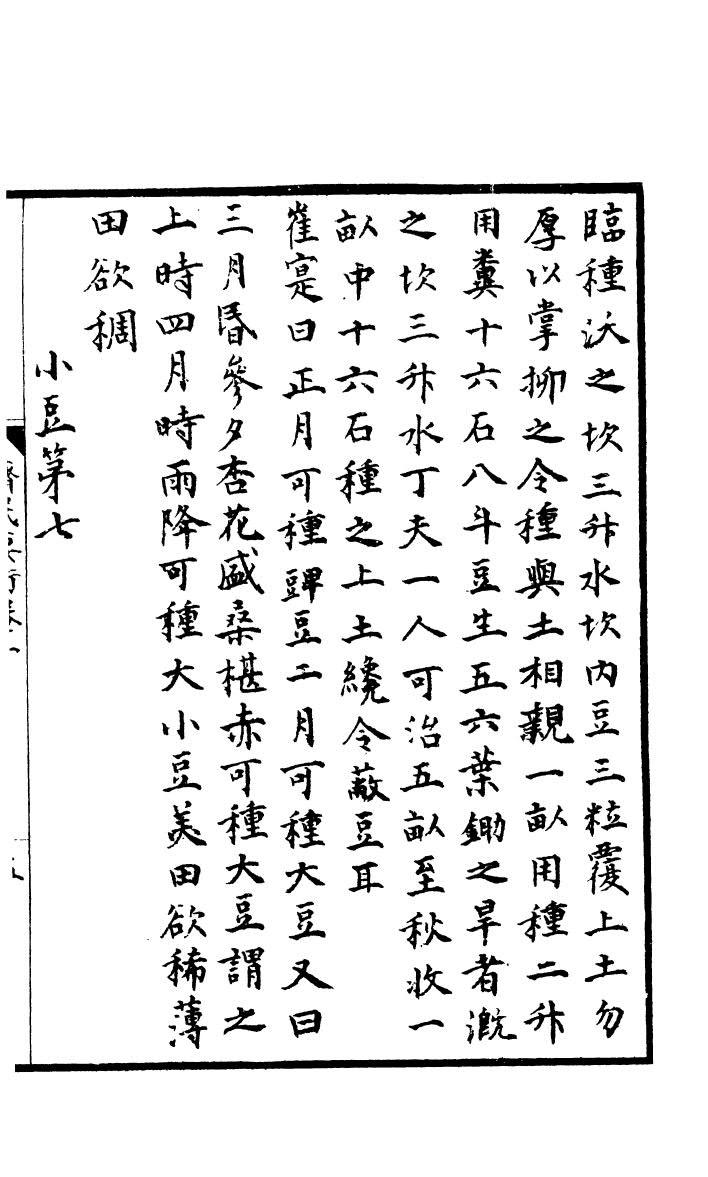 臨種沃之坎三升水坎内豆三粒覆上土勿
厚以掌抑之令種與土相親一畝用種二升
用糞十六石八斗豆生五六葉鋤之旱者溉
之坎三升水丁夫一人可治五畝至秋收一
畝中十六石種之上土纔令蔽豆耳
崔寔曰正月可種豍豆二月可種大豆又曰
三月昏參夕杏花盛桑椹赤可種大豆謂之
上時四月時雨降可種大小豆美田欲稀薄
田欲稠
小豆第七
齊民要術卷